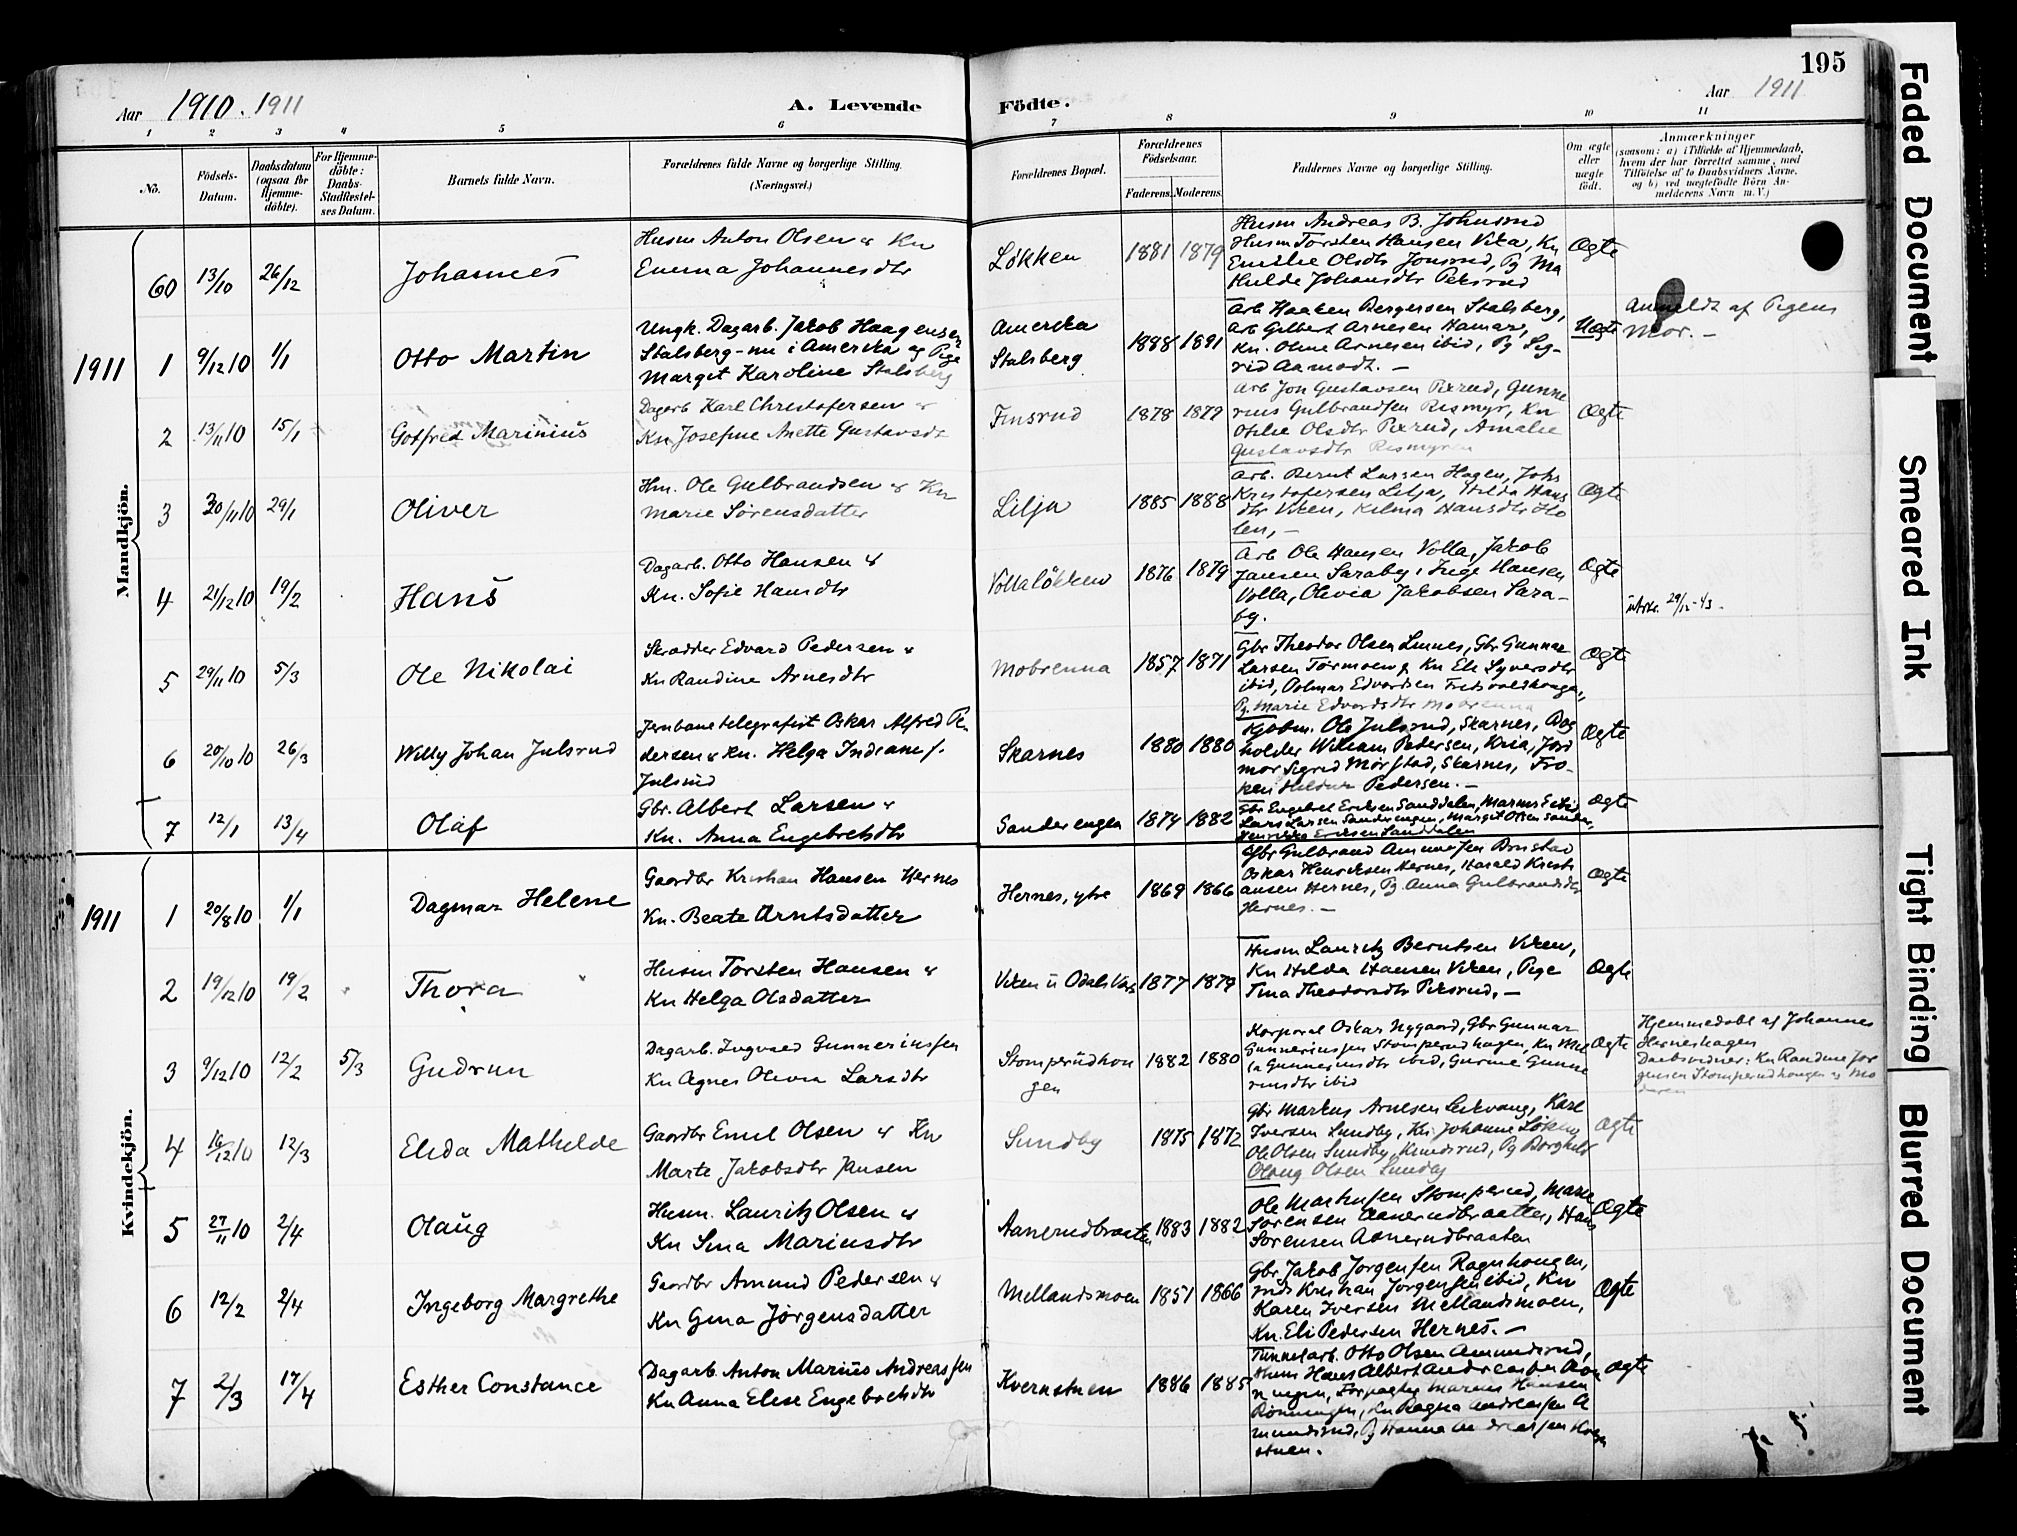 195
Aar 1910. 1911
A. Levende Födte.
Aar 1911
1 2 3 4 5 6 7 8 9 10 11
No.
Födsels-Datum.
Daabsdatum (ogsaa for Hjemme-döbte).
For Hjemme-döbte: Daabs-Stadfæstel-ses Datum.
Barnets fulde Navn.
Forældrenes fulde Navne og borgerlige Stilling. (Næringsvei.)
Forældrenes Bopæl.
Forældrenes Födselsaar.
Faderens. Moderens.
Faddernes Navne og borgerlige Stilling.
Om ægte eller uægte födt.
Anmærkninger
(saasom: a) i Tilfælde af Hjemmedaab, hvem der har forrettet samme, med Tilföielse af to Daabsvidners Navne, og b) ved uægtefödte Börn Anmelderens Navn m. V.)
Mandkjön.
60 13/10 26/12 Johannes
Husm Anton Olsen & Kn
Emma Johannesdtr
Løkken 1881 1879
Husm Andreas B. Johnsrud
Husm Torsten Hansen Vika, Kn
Emilie Olsdtr Jonsrud, Pg Ma
Ægte
1911 1 9/12 10 1/1 Otto Martin
Ungk. Dagarb. Jakob Haagensen
Stalsberg - nu i Amerika og Pige
Margit Karoline Stalsberg
Amerika
Stalsberg
1888 1891
Arb Haaken Bergersen Stalsberg,
Arb Gilbert Arnesen Hamar,
Kn. Oline Arnesen ibid, Pg Sig-
rid Aamodt. -
Uægte
Anmeldt af Pigens
Mor. -
2 13/11 10 15/1 Gotfred Marinius
Dagarb Karl Christofersen &
Kn Josefine Anette Gustavsdt
Finsrud 1878 1879
Arb Jon Gustavsen Pixrud, Gunne
rius Gulbrandsen Rismyr, Kn
Otilie Olsdtr Pixrud, Amalie
Gustavsdtr Rismyren
Ægte
3 30/11 10 29/1 Oliver
Hm. Ole Gulbrandsen & Kn
Marie Sørensdatter
Lilja 1885 1888
Arb. Bernt Larsen Hagen, Johs
Kristofersen Lilja, Hilda Hans
dtr Viken, Hilma Hansdtr Ho
len, -
Ægte
4 21/12 10 19/2 Hans
Dagarb. Otto Hansen &
Kn. Sofie Hansdtr
Vollaløkken 1876 1879
Arb Ole Hansen Volla, Jakob
Jansen Saraby, Inge Hansen
Volla, Olivia Jakobsen Sara-
by.
Ægte
5 29/11 10 5/3 Ole Nikolai
Skrædder Edvard Pedersen &
Kn Randine Arnesdtr
Mobrenna 1857 1871
Gbr Theodor Olsen Linnes, Gbr Gunnar
Larsen Tormoen & Kn Eli Syversdtr
Pg. Marie Edvardsdtr Mobrenna
Ægte
6 20/10 10 26/3 Willy Johan Julsrud
Jernbanetelegrafist Oskar Alfred Pe
dersen & Kn. Helga Indiane f.
Julsrud
Skarnes 1880 1880
Kjøbm. Ole Julsrud, Skarnes, Bog
holder William Pedersen, Kria, Jord
mor Sigrid Mørstad, Skarnes, Frø-
ken Pedersen. -
Ægte
7 12/1 13/4 Olaf
Gbr. Albert Larsen &
Kn. Anna Engebretsdtr
Sanderengen 1874 1882
Gbr Engebret Eriksen Sanddalen,
Lars Larsen Sanderengen, Margit Olsen Sander,
Eriksen Sanddalen
Ægte
Kvindekjön.
1911 1 20/8 10 1/1 Dagmar Helene
Gaardbr Kristian Hansen Hernes
Kn. Beate Arntsdatter
Hernes, ytre 1869 1866
Gbr Gulbrand Amundsen Brustad
Oskar Henriksen Hernes, Harald Kristi
ansen Hernes, Pg Anna Gulbrandsdtr
Hernes. -
Ægte
2 19/12 10 19/2 Thora
Husm Torsten Hansen &
Kn Helga Olsdatter
Viken 1877 1879
Husm Lauritz Berntsen Viken,
Kn Hilda Hansen Viken, Pige
Tina Theodorsdtr Piksrud, -
Ægte
3 9/12 10 12/2 5/3 Gudrun
Dagarb. Ingvald Gunneriussen
Kn Agnes Olivia Larsdtr
Stomperudhau
gen
1882 1880
Korporal Oskar Nygaard, Gbr Gunnar
Gunneriussen Stomperudhagen, Kn Mil
la Gunneriusdtr ibid, Gurine Gunne
riusdtr ibid
Ægte
Hjemmedøbt af Johannes
Herneshagen
Daabsvidner: Kn Randine Jør
gensen Stomperudhaugen og Mo
deren
4 16/12 10 12/3 Elida Mathilde
Gaardbr Emil Olsen & Kn
Marte Jakobsdtr Jansen
Sundby 1875 1872
Gbr Markus Arnesen Leikvang, Karl
Iversen Sundby, Kn Johanne Løken
Ole Olsen Sundby, Pg Borghild
Olaug Olsen Sundby
Ægte
5 27/11 10 2/4 Olaug
Husm. Lauritz Olsen &
Kn Sina Mariusdtr
Aanerudbraaten 1883 1882
Ole Mathisen Stomperud, Marie
Sørensen Aanerudbraaten, Hans
Sørensen Aanerudbraaten
Ægte
6 12/2 2/4 Ingeborg Margrethe
Gaardbr Amund Pedersen &
Kn Gina Jørgensdatter
Mellandsmoen 1851 1866
Gbr Jakob Jørgensen Ragnhaugen,
Inds Kristian Jørgensen ibid, Kn
Karen Iversen Mellandsmoen,
Kn. Eli Pedersen Hernes. -
Ægte
7 2/3 17/4 Esther Constance
Dagarb. Anton Marius Andreassen
Kn Anna Elise Engebretsdtr
Kvernstuen 1886 1885
Tunnelarb. Otto Olsen Amundsrud,
Husm Hans Albert Andreassen Røn
ningen, Forpagter Marius Hansen
Rønningen, Kn Ragna Andreassen A
mundsrud, Pg Hanna Andreassen
stuen.
Ægte
Faded Document
Smeared Ink
Tight Binding
Blurred Document